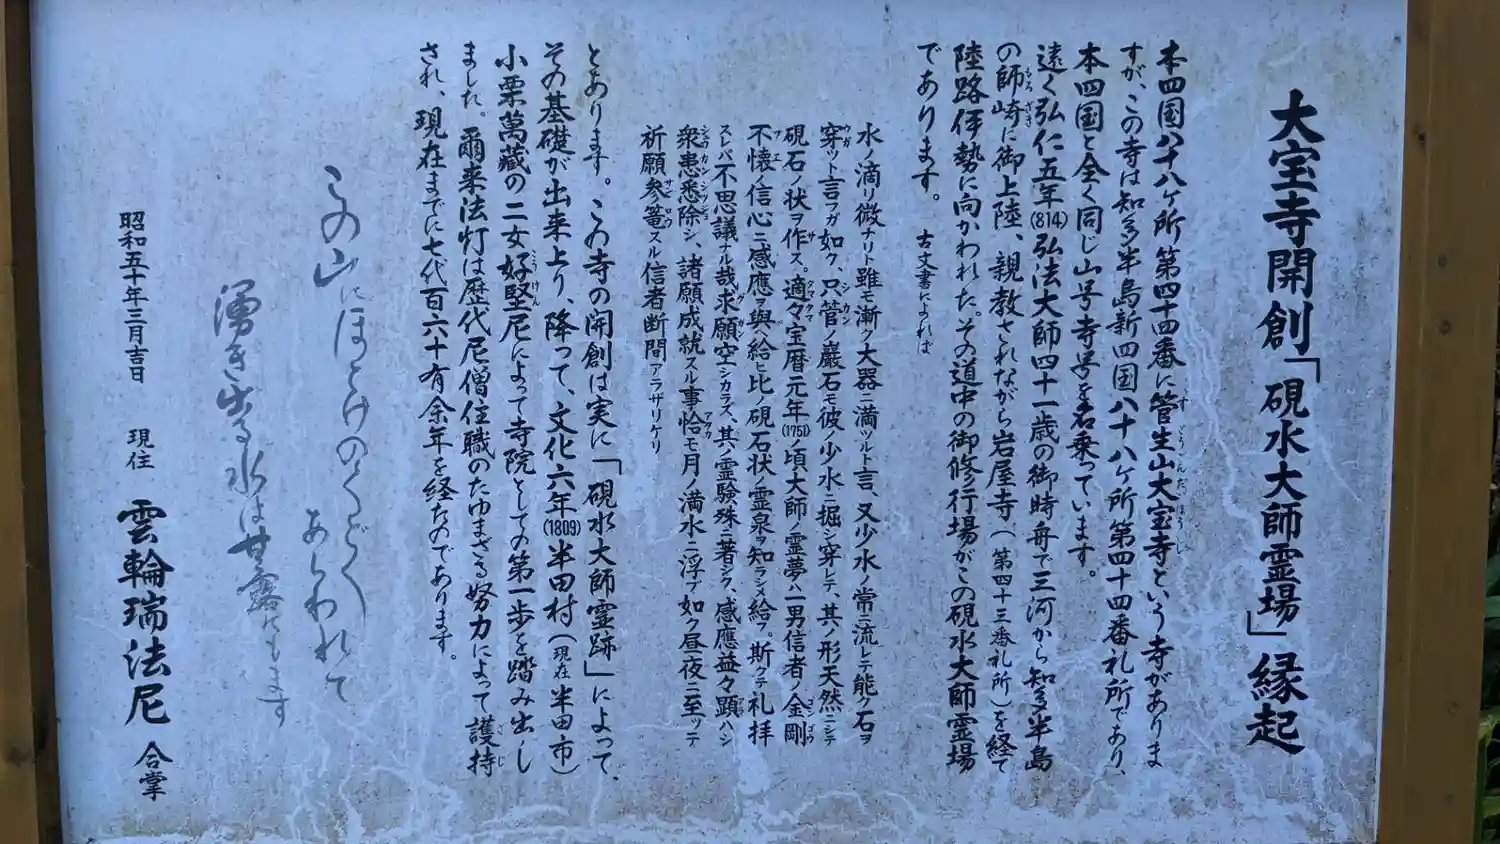 大宝寺開創「硯水大師霊場」縁起
本四国八十八ケ所第四十四番に管生山大宝寺という寺がありま
すが、この寺は知多半島新四国八十八ケ所第四十四番札所であり、
本四国と全く同じ山号寺号を名乗っています。
遠く弘仁五年(814)弘法大師四十一歳の御時舟で三河から知多半島
の師崎に御上陸、親教されながら岩屋寺(第四十三番札所)を経て
陸路伊勢に向かわれた。その道中の御修行場がこの硯水大師霊場
であります。 古文書によれば
水ノ滴リ微ナリト雖モ漸ク大器ニ満ツルト言、又少水ノ常ニ流レテ能ク石ヲ
穿ツト言フガ如ク、只管ノ巖石モ彼ノ少水ニ掘シ穿レテ、其ノ形天然ニシテ
硯石ノ状ヲ作ス。適々宝暦元年(1751)ノ頃大師ノ霊夢ハ一男信者ノ金剛
不懐信心ニ感應ヲ與ヘ給ヒ比ノ硯石状ノ霊泉ヲ知ラシメ給フ。斯クテ礼拝
スレバ不思議ナル哉求願空シカラス、其ノ霊験殊ニ著シク、感應益々顕ハシ
衆患悉除シ、諸願成就スル事恰モ月ノ満水ニ浮ブ如ク昼夜ニ至ッテ
祈願参篭スル信者断間アラザリケリ
とあります。この寺の開創は実に「硯水大師霊跡」によって、
その基礎が出来上り、降って、文化六年(1809)半田村(現在半田市)
小栗萬藏の二女好堅尼によって寺院としての第一歩を踏み出し
ました。爾来法灯は歴代尼僧住職のたゆまざる努力によって護持
され、現在までに七代百六十有余年を経たのであります。
この山にほとけのくどく
あらわれて
湧き出る水は甘露にもます
昭和五十年三月吉日 現住 雲輪瑞法尼 合掌